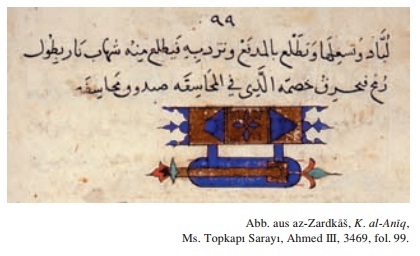 ٩٩
لباد وتشعلها وتطلع بالمدفع وترديه فيطلع منه شهاب نار بطول
رمح فيحرق خصمه الذي في المحاسقه صندوق مخاسفه
Abb. aus az-Zardkāš, K. al-Anīq,
Ms. Topkapı Sarayı, Ahmed III, 3469, fol. 99.